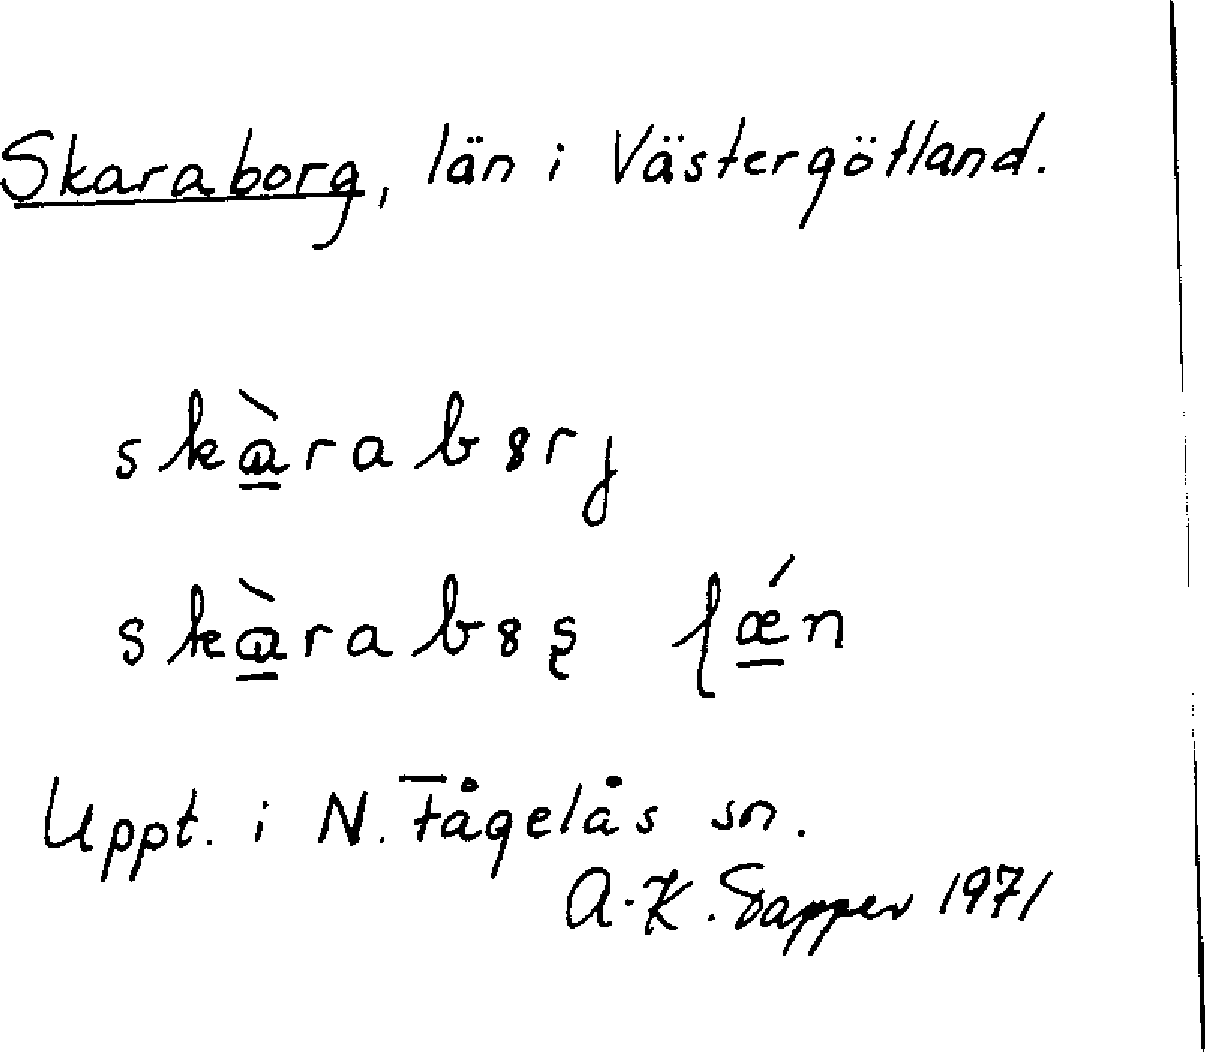 Skaraborg, län i Västergötland.
skɑ̠̀rabꞝrj
skɑ̠̀rabꞝʂ lǽ̠n
Uppt. i N. Fågelås sn.
A-K. Sapper 1971